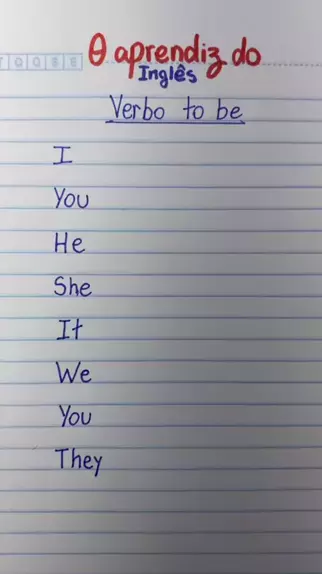 O aprendiz do
Inglês
Verbo to be
I
You
He
She
It
We
You
They